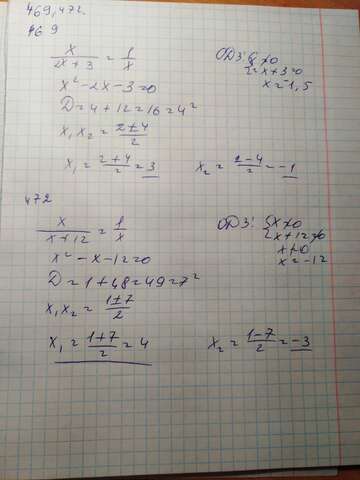 469, 472.
469
x/(2x+3) = 1/x
ОДЗ: { x≠0
2x+3≠0
x = -1,5
x² - 2x - 3 = 0
D = 4 + 12 = 16 = 4²
x₁x₂ = (2±4)/2
x₁ = (2+4)/2 = 3
x₂ = (2-4)/2 = -1
472
x/(x+12) = 1/x
ОДЗ: { x≠0
x+12≠0
x≠0
x = -12
x² - x - 12 = 0
D = 1 + 48 = 49 = 7²
x₁x₂ = (1±7)/2
x₁ = (1+7)/2 = 4
x₂ = (1-7)/2 = -3